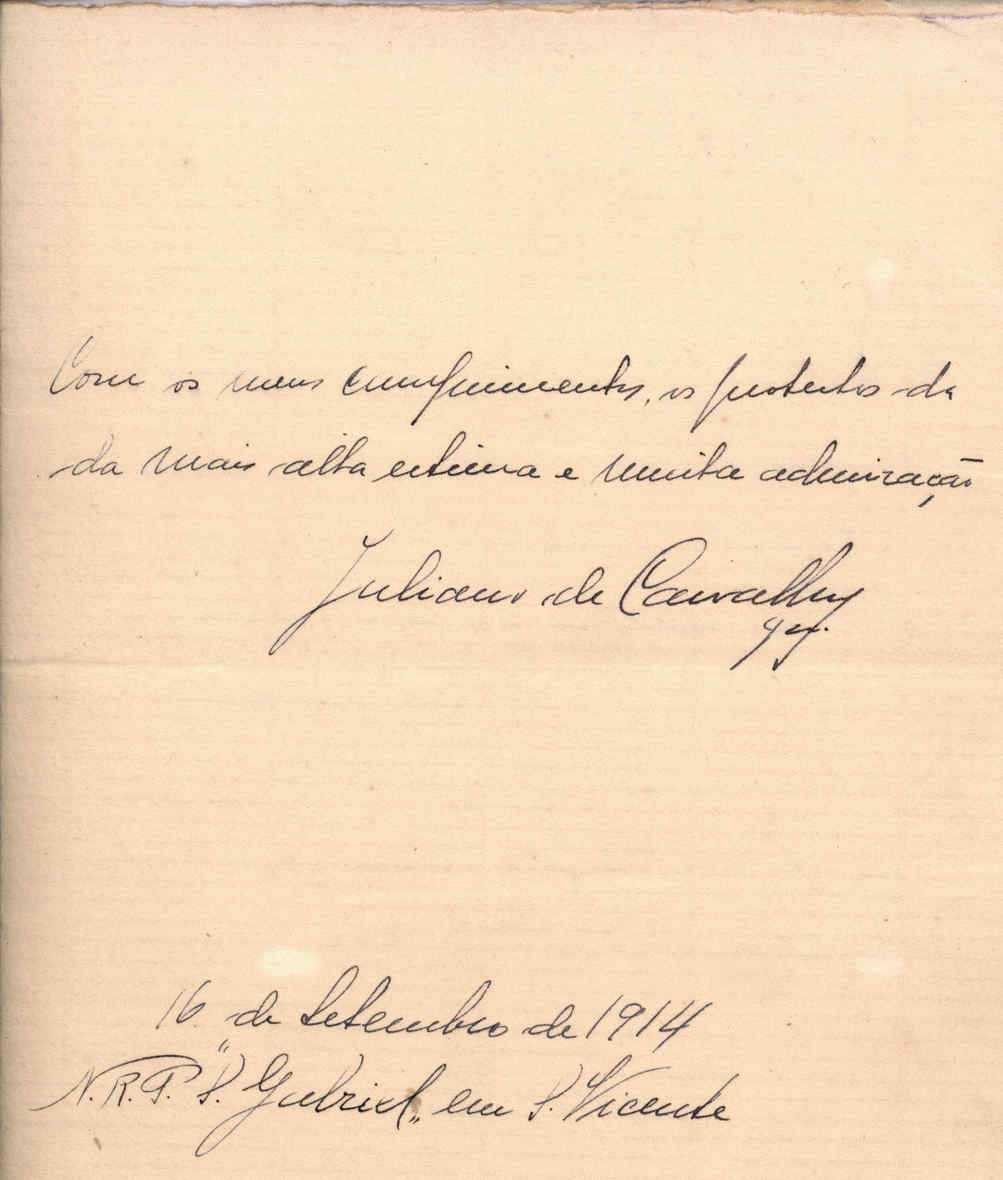 Com os meus cumprimentos, os protestos da
da mais alta estima e muita admiração
Juliano de Carvalho
16 de Setembro de 1914
N.R.P. "S. Gabriel" em S. Vicente